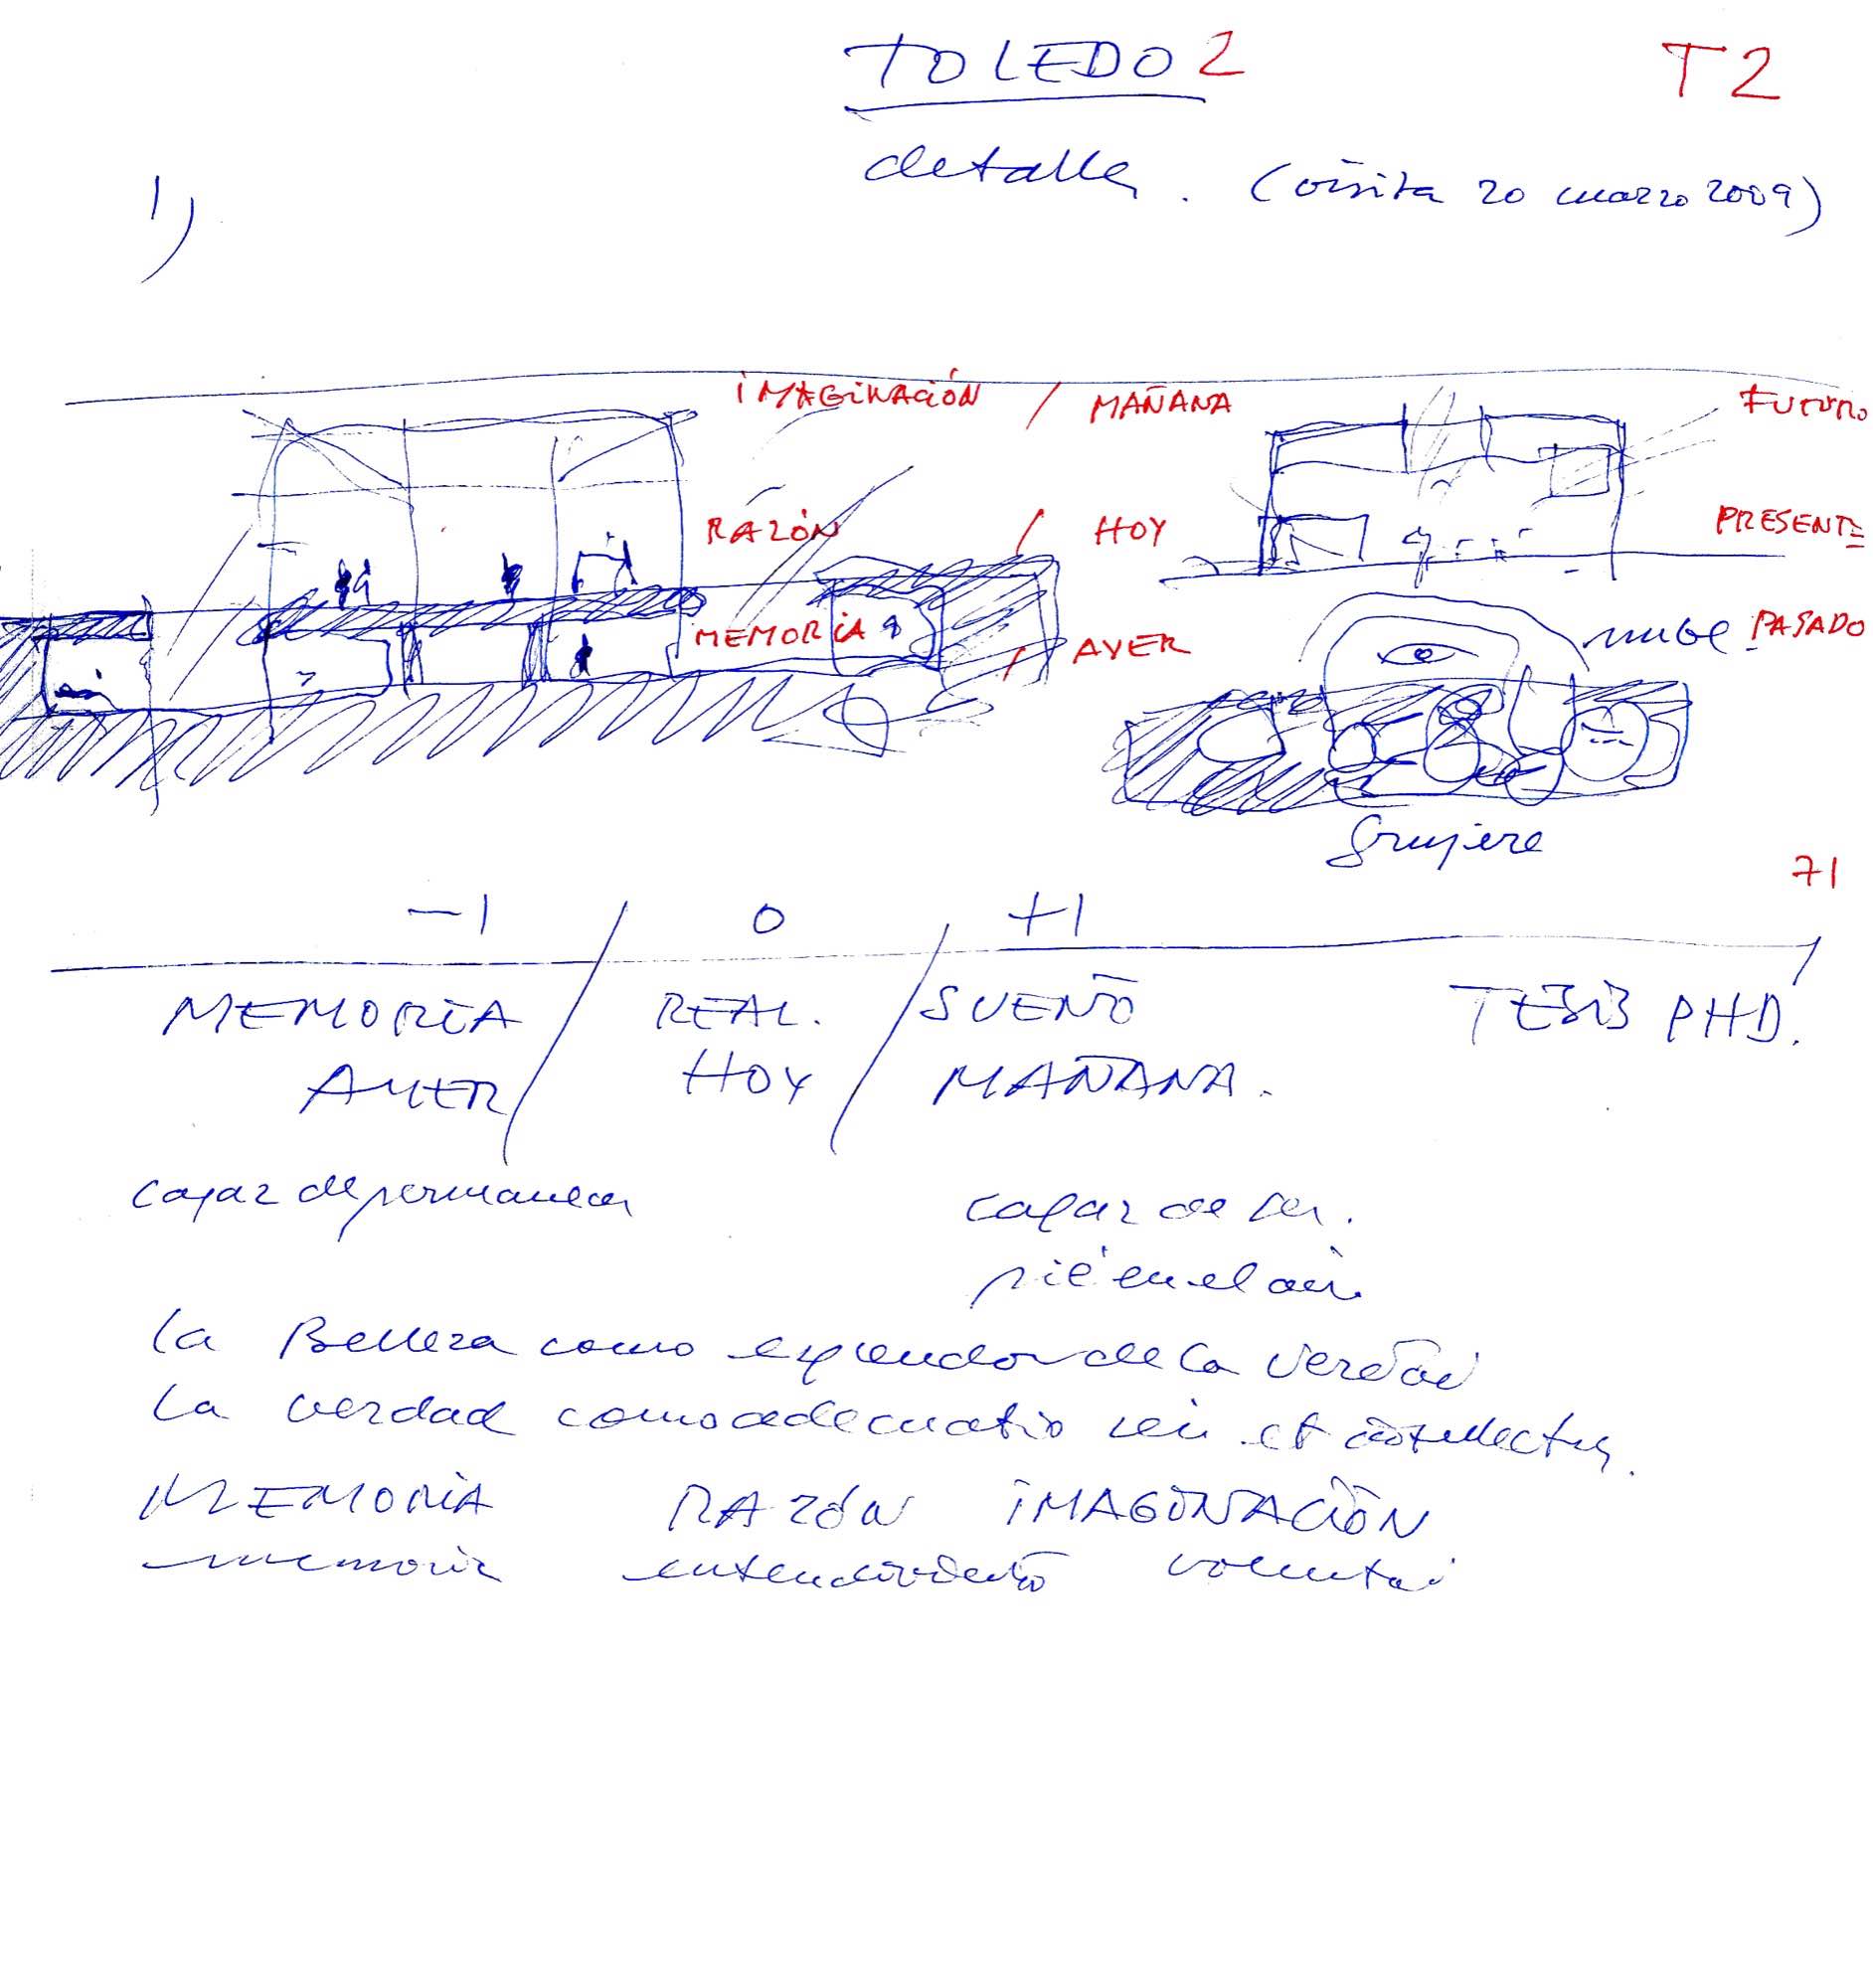 TOLEDO 2
T2
detalles. (visita 20 marzo 2009)
1)
iMAGiNACiÓN / MAÑANA
FUTURO
RAZÓN / HOY
PRESENTE
MEMORiA / AYER
nube PASADO
Gruyere
71
-1 / 0 / +1
MEMORiA / REAL. / SUEÑO
TESiS PHD.
AYER / HOY / MAÑANA.
capaz de permanecer
capaz de ser.
pié en el aire
La Belleza como esplendor de la Verdad
La verdad como adecuatio rei et intellectus.
MEMORiA RAZÓN iMAGiNACiÓN
memoria entendimiento voluntad